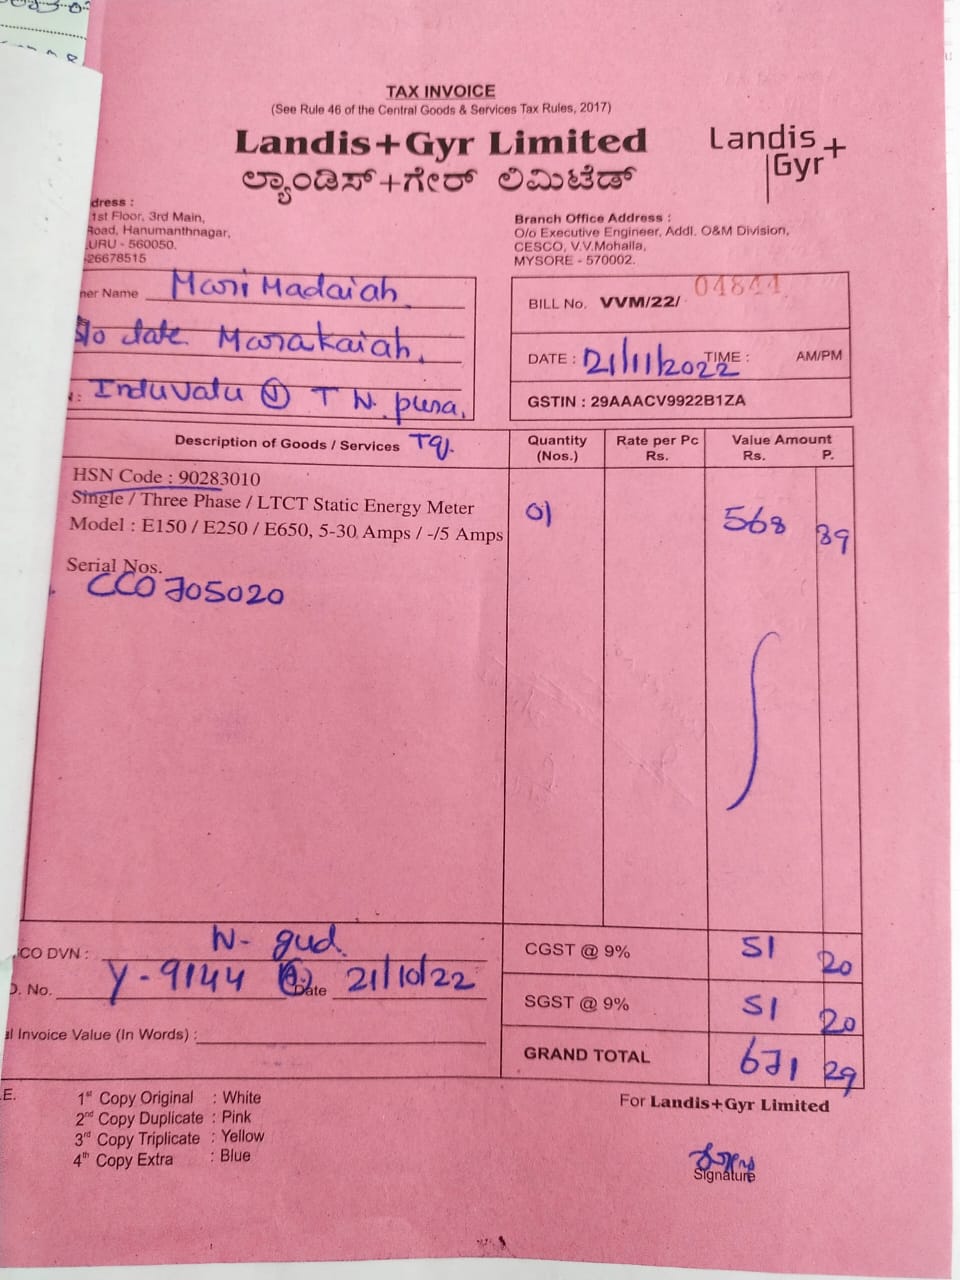 TAX INVOICE
(See Rule 46 of the Central Goods & Services Tax Rules, 2017)
Landis+Gyr Limited
ಲ್ಯಾಂಡಿಸ್+ಗೇರ್ ಲಿಮಿಟೆಡ್
Landis
Gyr+
dress :
1st Floor, 3rd Main,
Road, Hanumanthnagar,
URU - 560050.
26678515
Branch Office Address :
O/o Executive Engineer, Addl. O&M Division,
CESCO, V.V.Mohalla,
MYSORE - 570002.
ner Name Mari Madaiah
S/o late Marakaiah,
Induvalu (V) T N. pura,
Tq.
BILL No. VVM/22/ 04844
DATE : 21/11/2022 TIME : AM/PM
GSTIN : 29AAACV9922B1ZA
Description of Goods / Services Quantity (Nos.) Rate per Pc Rs. Value Amount Rs. P.
HSN Code : 90283010
Single / Three Phase / LTCT Static Energy Meter
Model : E150 / E250 / E650, 5-30 Amps / -/5 Amps 01 568 89
Serial Nos.
CCO705020
CO DVN : N- gud
CGST @ 9% 51 20
O. No. Y-9144 Date 21/10/22
SGST @ 9% 51 20
al Invoice Value (In Words) :
GRAND TOTAL 671 29
E.
1st Copy Original : White
2nd Copy Duplicate : Pink
3rd Copy Triplicate : Yellow
4th Copy Extra : Blue
For Landis+Gyr Limited
Signature